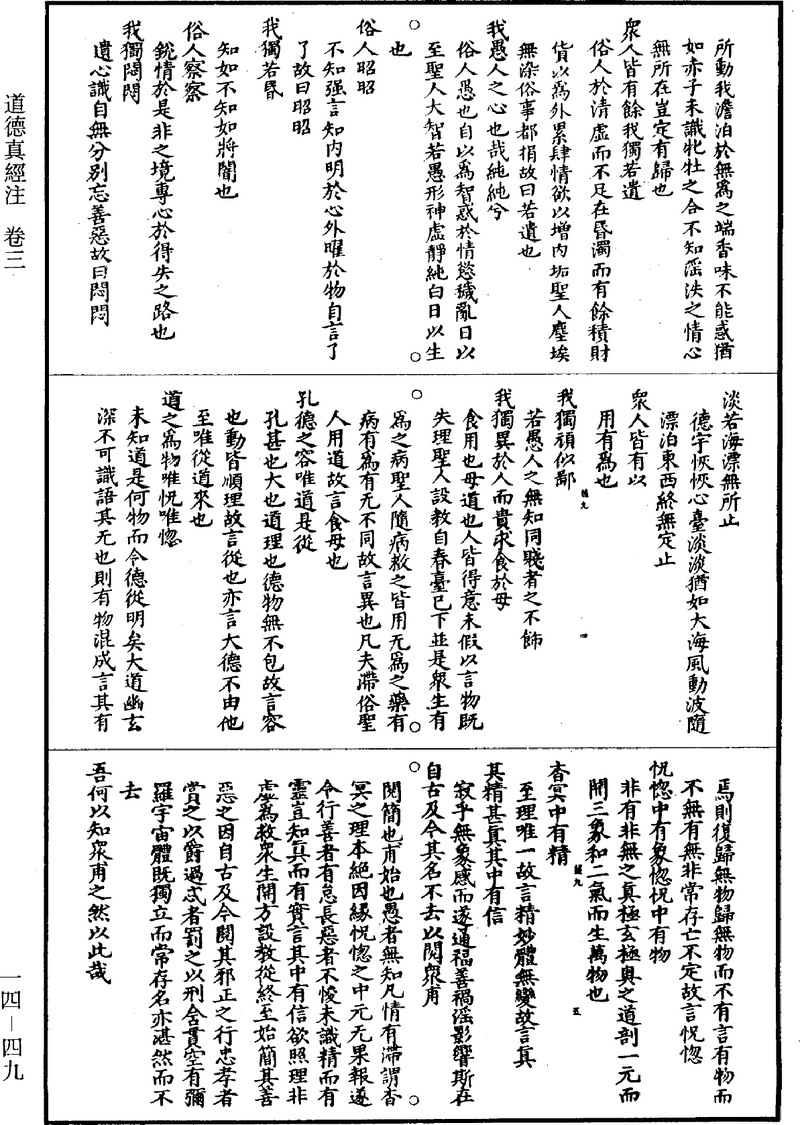 道德真經注　卷三
一四－四九
所動我澹泊於無為之端香味不能惑猶
如赤子未識牝牡之合不知滛泆之情心
無所在豈定有歸也
眾人皆有餘我獨若遺
俗人於清虛而不足在昏濁而有餘積財
貨以為外累肆情欲以增內垢聖人塵埃
無染俗事都捐故曰若遺也
我愚人之心也哉純純兮
俗人愚也自以為智惑於情慾穢亂日以
至聖人大智若愚形神虛靜純白日以生
也
俗人昭昭
不知强言知內明於心外曜於物自言了
了故曰昭昭
我獨若昏
知如不知如將闇也
俗人察察
銳情於是非之境專心於得失之路也
我獨悶悶
遺心識自無分別忘善惡故曰悶悶
淡若海漂無所止
德宇恢恢心臺淡淡猶如大海風動波隨
漂泊東西終無定止
眾人皆有以
用有為也
我獨頑似鄙
若愚人之無知同賤者之不飾
我獨異於人而貴求食於母
食用也母道也人皆得意未假以言物既
失理聖人設教自春臺已下並是眾生有
為之病聖人隨病救之皆用无為之藥有
病有為有无不同故言異也凡夫滯俗聖
人用道故言食母也
孔德之容唯道是從
孔甚也大也道理也德物無不包故言容
也動皆順理故言從也亦言大德不由他
至唯從道來也
道之為物唯怳唯惚
未知道是何物而令德從明矣大道幽玄
深不可識語其无也則有物混成言其有
焉則復歸無物歸無物而不有言有物而
不無有無非常存亡不定故言怳惚
怳惚中有象惚怳中有物
非有非無之真極玄極奧之道剖一元而
開三象和二氣而生萬物也
杳冥中有精
至理唯一故言精妙體無變故言真
其精甚真其中有信
寂乎無象感而遂通福善禍滛影響斯在
自古及今其名不去以閱眾甫
閱簡也甫始也愚者無知凡情有滯謂杳
冥之理本絕因緣怳惚之中元无果報遂
令行善者有怠長惡者不悛未識精而有
靈豈知真而有實言其中有信欲照理非
虛為救眾生開方設教從終至始簡其善
惡之因自古及今閱其邪正之行忠孝者
賞之以爵過忒者罰之以刑舍貫空有彌
羅宇宙體既獨立而常存名亦湛然而不
去
吾何以知眾甫之然以此哉